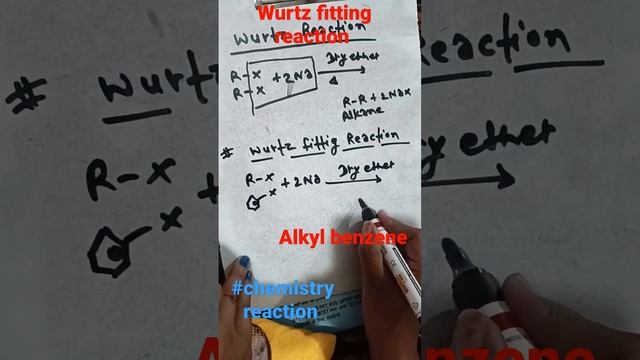 Wurtz fitting
reaction
Wurtz Reaction
R-X
R-X
+2Na
Dry ether
Δ
R-R + 2NaX
Alkane
# Wurtz fittig Reaction
R-X
X
+ 2Na
Dry ether
Alkyl benzene
#chemistry
reaction